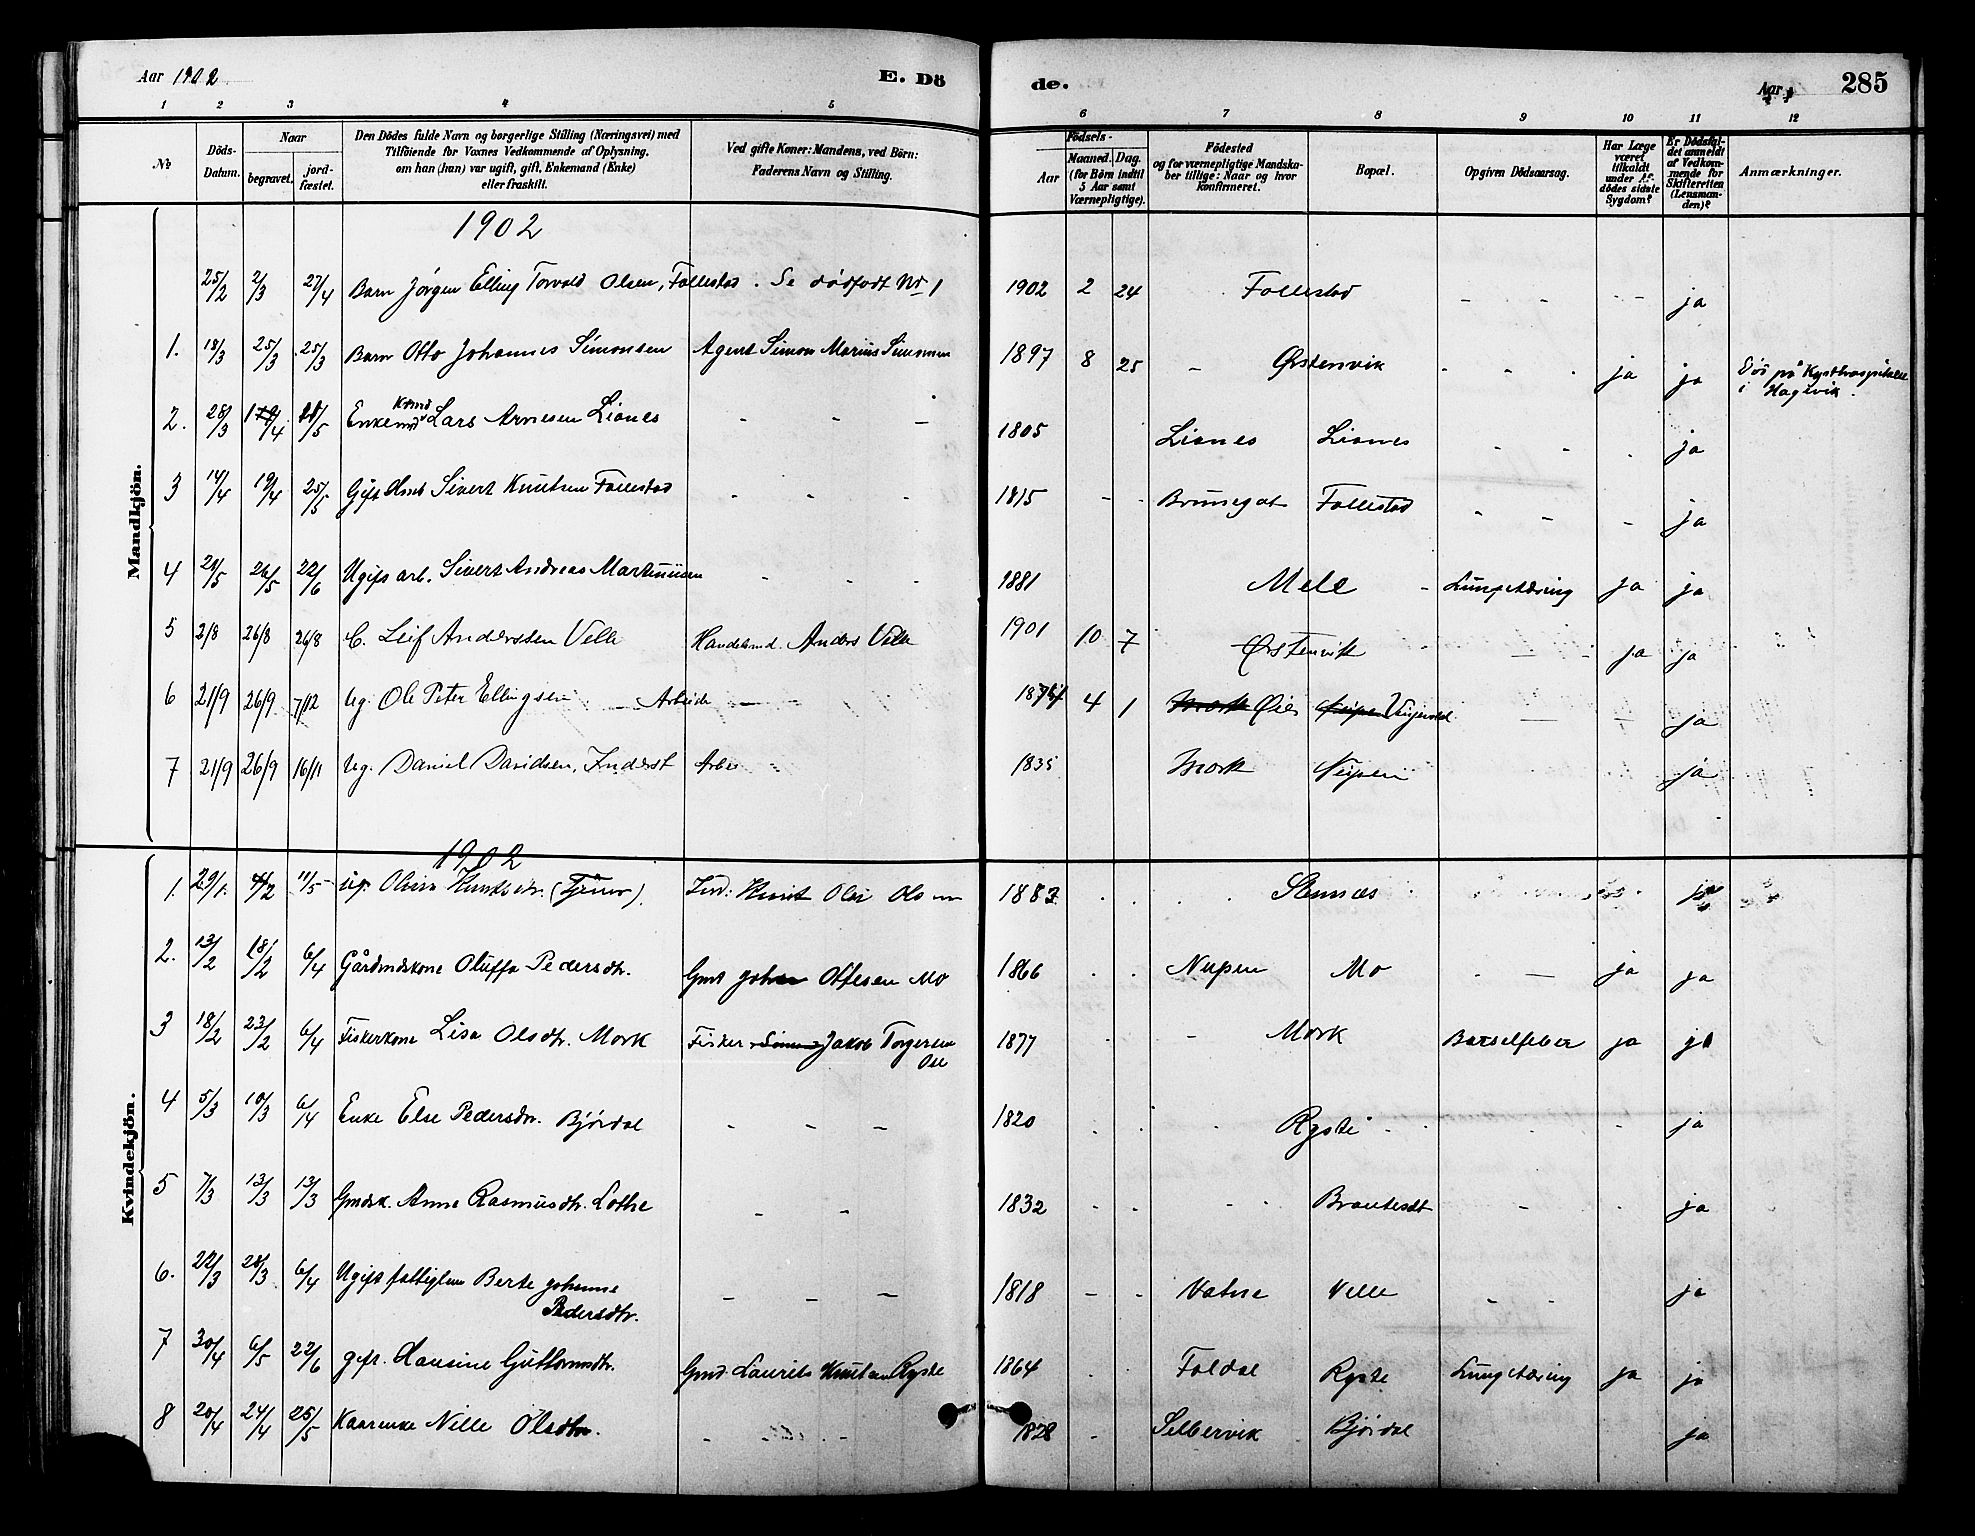 Aar 1902
E. Dö
de.
Aar
285
1 2 3 4 5 6 7 8 9 10 11 12
No
Döds-Datum.
Naar
begravet.
jord-fæstet.
Den Dödes fulde Navn og borgerlige Stilling (Næringsvei) med
Tilföiende for Voxnes Vedkommende af Oplysning,
om han (hun) var ugift, gift, Enkemand (Enke)
eller fraskilt.
Ved gifte Koner: Mandens, ved Börn:
Faderens Navn og Stilling.
Födsels-
Aar
Maaned. Dag.
(for Börn indtil
5 Aar samt
Værnepligtige).
Födested
og for værnepligtige Mandska-
ber tillige: Naar og hvor
konfirmeret.
Bopæl.
Opgiven Dödsaarsag.
Har Læge
været
tilkaldt
under Af-
dödes sidste
Sygdom?
Er Dödsfal-
det anmeldt
af Vedkom-
mende for
Skifteretten
(Lensman-
den)?
Anmærkninger.
Mandkjön.
1902
25/2 2/3 27/4 Barn Jørgen Elling Torvald Olsen, Follestad. Se dødfødt No 1 1902 2 24 Follestad - - - - ja
1. 18/3 25/3 25/3 Barn Otto Johannes Simonsen Agent Simon Marius Simonsen 1897 8 25 - Ørstenvik - - - ja ja Død på Kysthospitalet
i Hagevik.
2. 28/3 /4 /5 Enkemd Kårmd Lars Arnesen Lianes - - - 1805 Lianes Lianes - - - ja
3 14/4 19/4 25/5 Gift Sivert Knutsen Follestad - - - 1815 - - Brunegot Follestad - - - ja
4 21/5 26/5 22/6 Ugift arb. Sivert Andreas Martinusen - - - 1881 Mele - Lungetæring ja ja
5 2/8 26/8 26/8 C. Leif Anderssen Velle Handelsmd. Anders Velle 1901 10 7 Ørstenvik ja ja
6 21/9 26/9 7/12 Ug. Ole Peter Ellingsen Arbeide 4 1 ja
7 21/9 26/9 16/11 Ug. Daniel Davidsen, Inderst Arbei 1835 Mork Nupen ja
Kvindekjön.
1902
1. 29/1. 4/2 11/5 ug. Olivia Knutsdtr. Ind: Knut Olai Olsen 1883 Stennæs ja
2. 13/2 18/2 6/4 Gårdmdskone Oluffa Pedersdtr. Gmd Johan Ottesen Mo 1866 Nupen Mo - - ja ja
3 18/2 23/2 6/4 Fiskerkone Lisa Olsdtr. Mork Fisker Jakob Torgersen
Ose 1877 - Mork Barselfeber ja ja
4 5/3 10/3 6/4 Enke Else Pedersdtr. Bjørdal - - - 1820 Ryste ja
5 7/3 13/3 13/3 Gmdsk. Anne Rasmusdtr. Lothe - - 1832 Brautesdt - ja
6. 22/3 28/3 6/4 Ugift fattiglem Berte Johanne
Pedersdtr. - - - 1818 - - Vatne Velle - - ja
7 30/4 6/5 22/6 gift. Hansine Guttormsdtr. Gmd. Laurits Knutsen Ryste 1864 Foldal Ryste Lungetæring ja ja
8 20/4 24/4 25/5 Kaarenke Nille Olsdtr. - - - 1828 - Selbervik Bjørdal ja